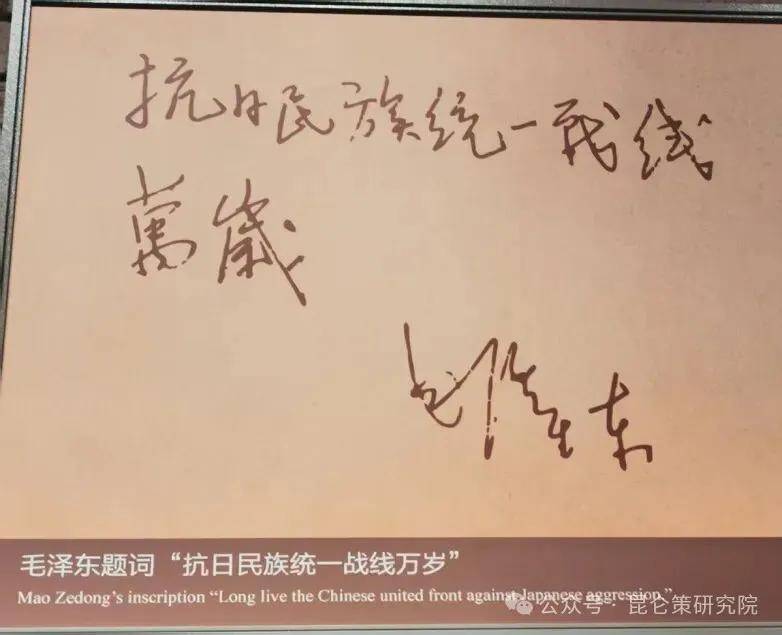 抗日民族统一戰线
萬歲
毛泽东
毛泽东题词“抗日民族统一战线万岁”
Mao Zedong's inscription “Long live the Chinese united front against Japanese aggression.”
公众号·昆仑策研究院